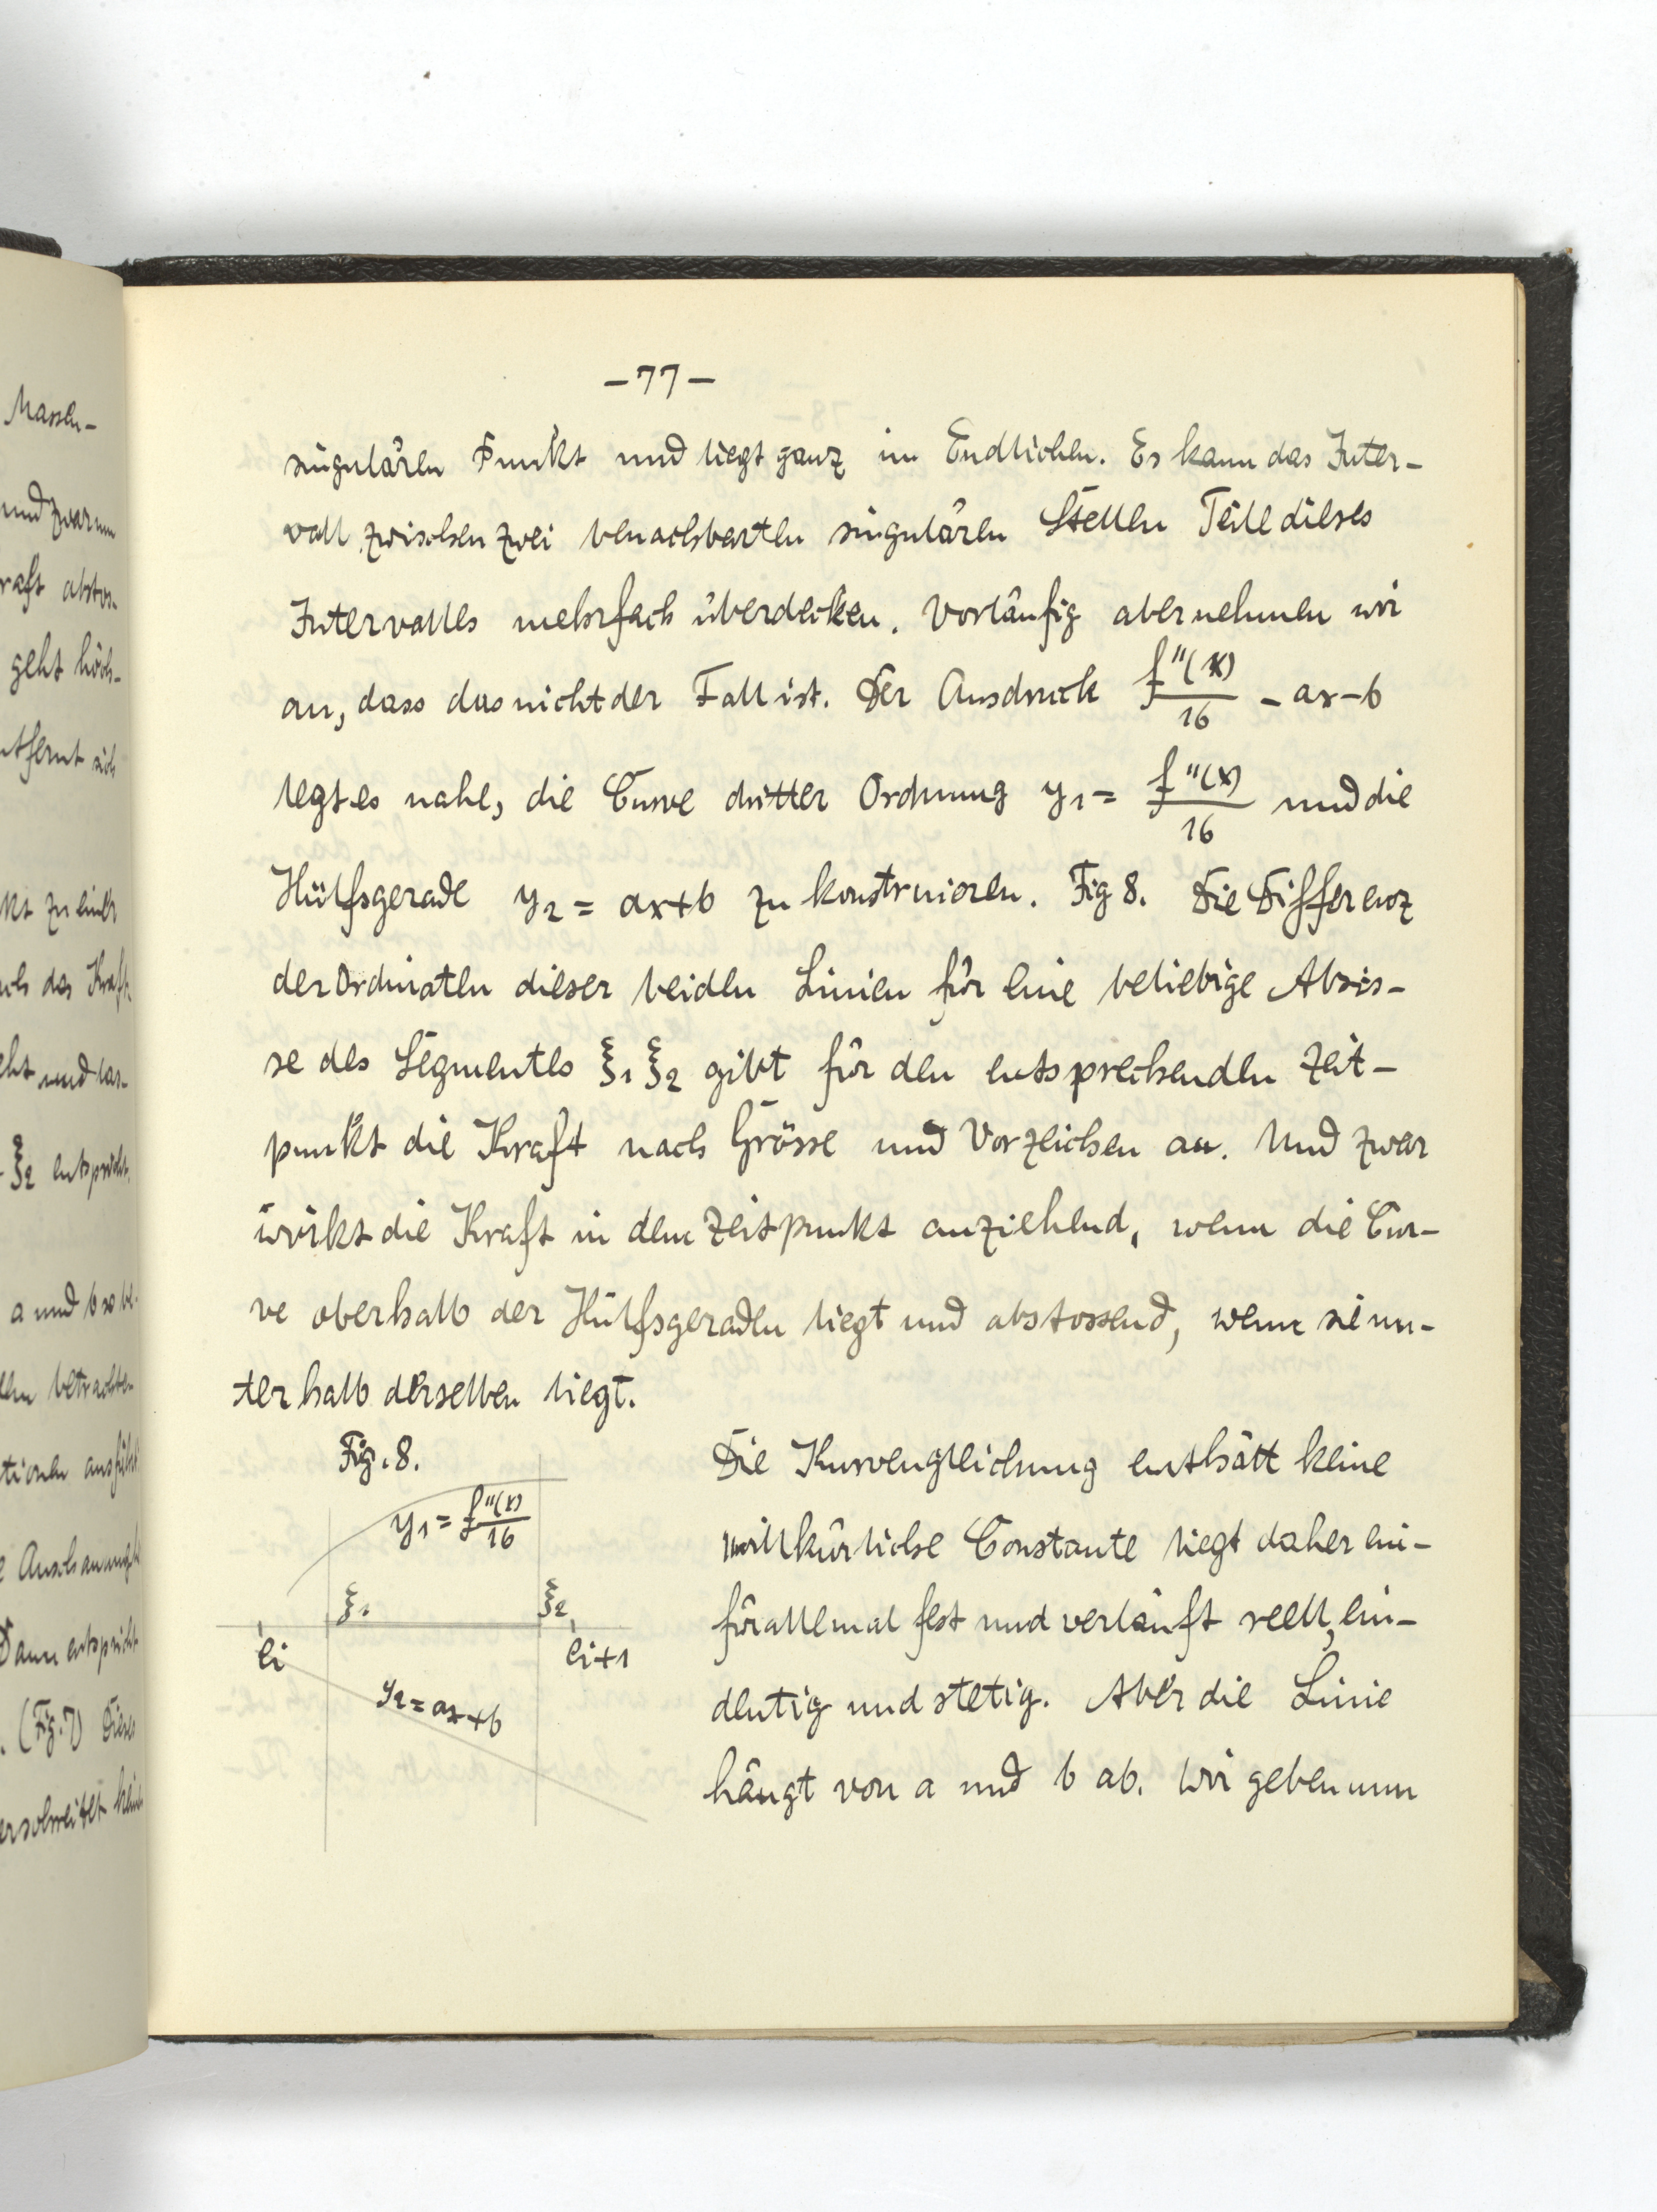 Massen-
und zwar um
raft abstos-
geht höch-
ntfernt sich
kt zu einer
das Kraft-
und las-
ξ2 entspricht.
a und b so be-
betrachte-
tionen ausführt
Anschauung
Dann entspricht
(Fig. 7) Dieses
-77-
singulären Punkt und liegt ganz im Endlichen. Es kann das Inter-
vall zwischen zwei benachbarten singulären Stellen Teile dieses
Intervalles mehrfach überdecken. Vorläufig aber nehmen wir
an, dass das nicht der Fall ist. Der Ausdruck f''(x)/16 - ax - b
legt es nahe, die Curve dritter Ordnung y1 = f''(x)/16 und die
Hülfsgerade y2 = ax+b zu konstruieren. Fig 8. Die Differenz
der Ordinaten dieser beiden Linien für eine beliebige Absis-
se des Segmentes ξ1 ξ2 gibt für den entsprechenden Zeit-
punkt die Kraft nach Grösse und Vorzeichen an. Und zwar
wirkt die Kraft in dem Zeitpunkt anziehend, wenn die Cur-
ve oberhalb der Hülfsgeraden liegt und abstossend, wenn sie un-
terhalb derselben liegt.
Fig. 8.
y1 = f''(x)/16
ξ1 ξ2
ei ei+1
y2 = ax+b
Die Kurvengleichung enthält keine
willkürliche Constante liegt daher ein-
fürallemal fest und verläuft reell, ein-
deutig und stetig. Aber die Linie
hängt von a und b ab. Wir geben nun